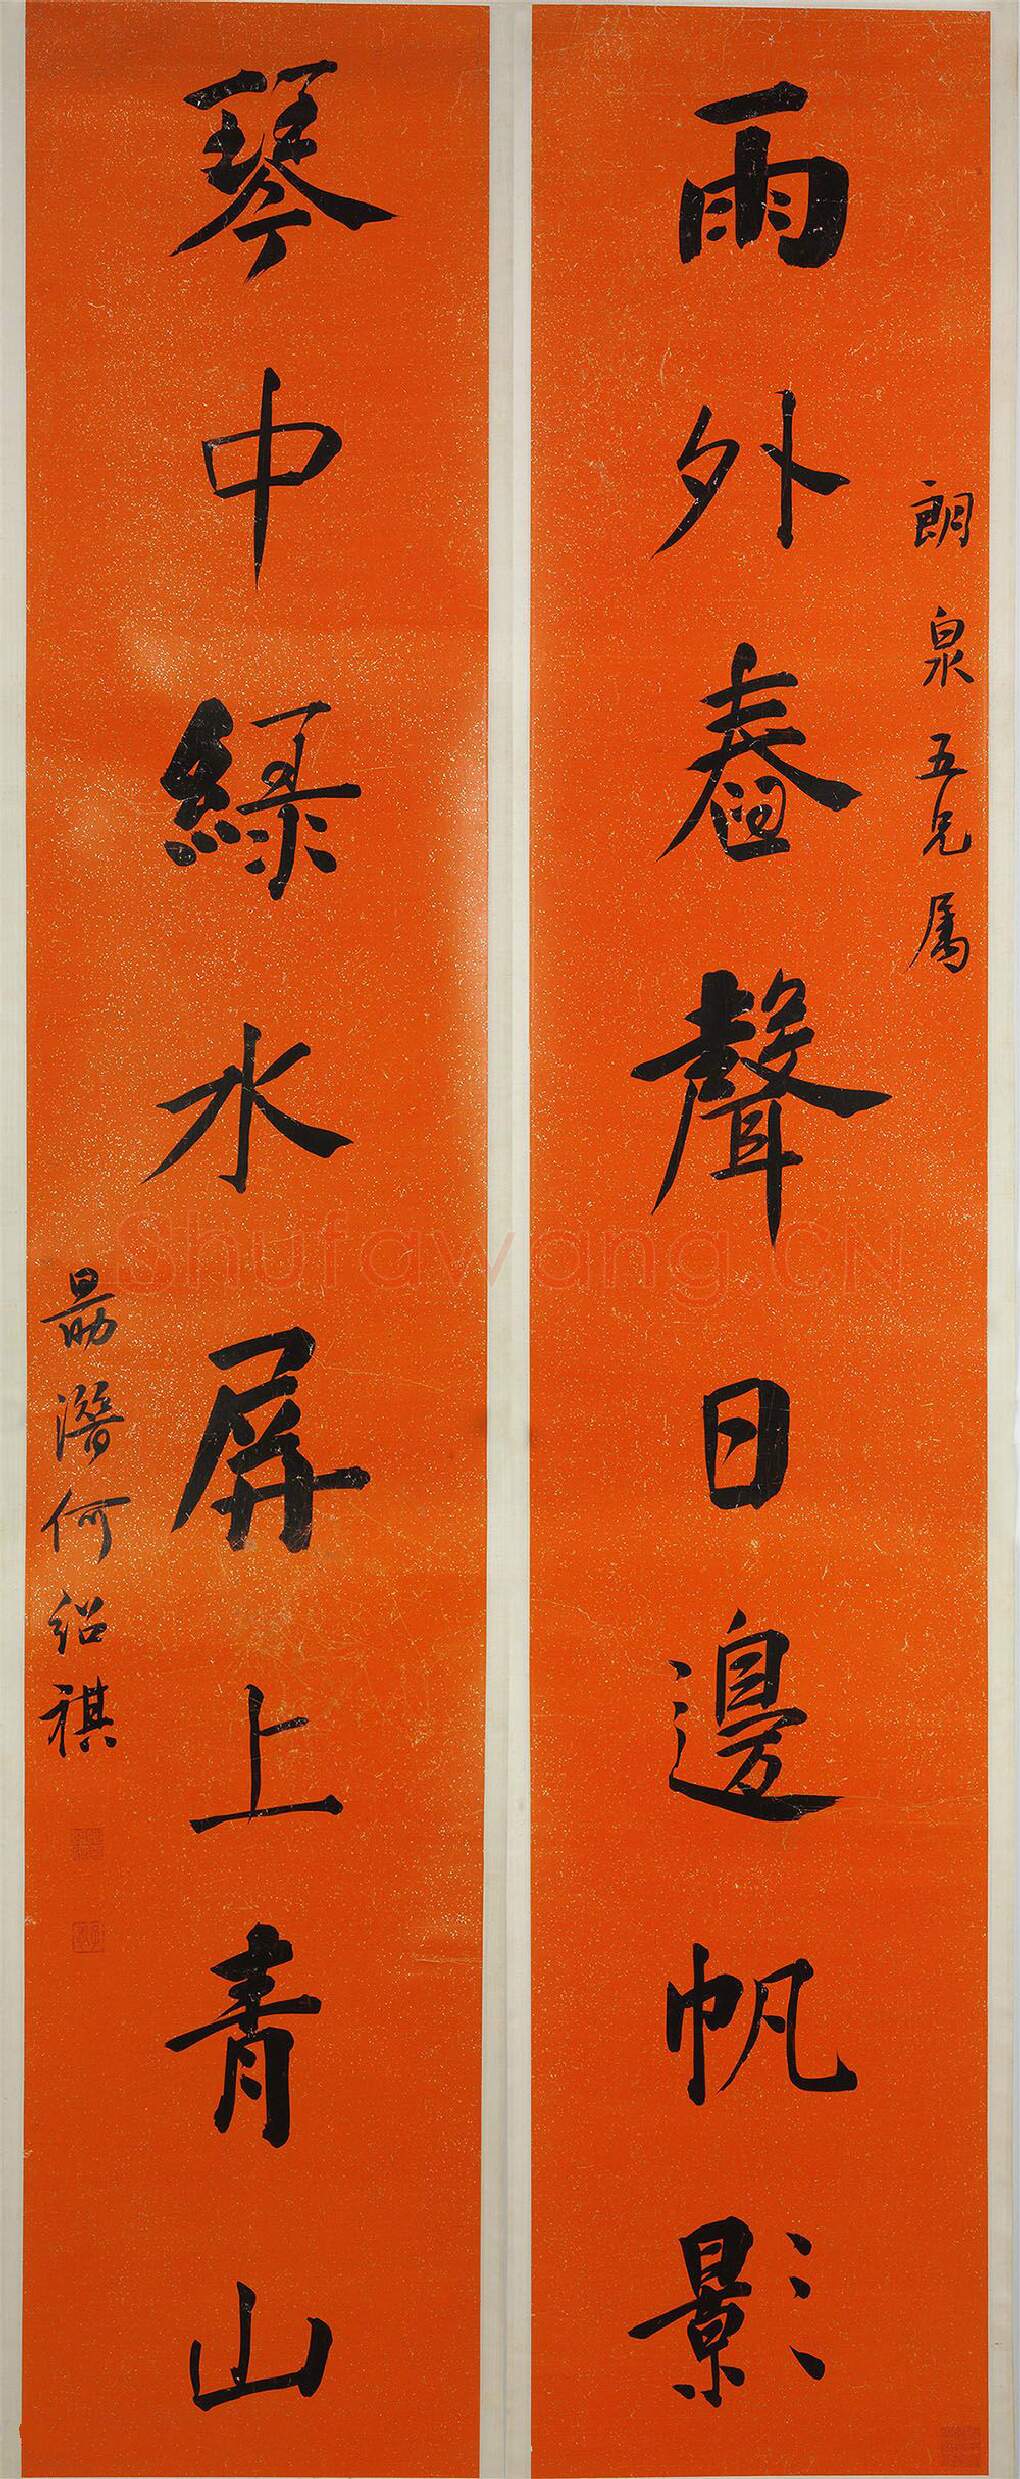 朗泉五兄属
雨外舂聲日邊帆影
琴中綠水屏上青山
勗潛何紹祺
Shufawang.CN